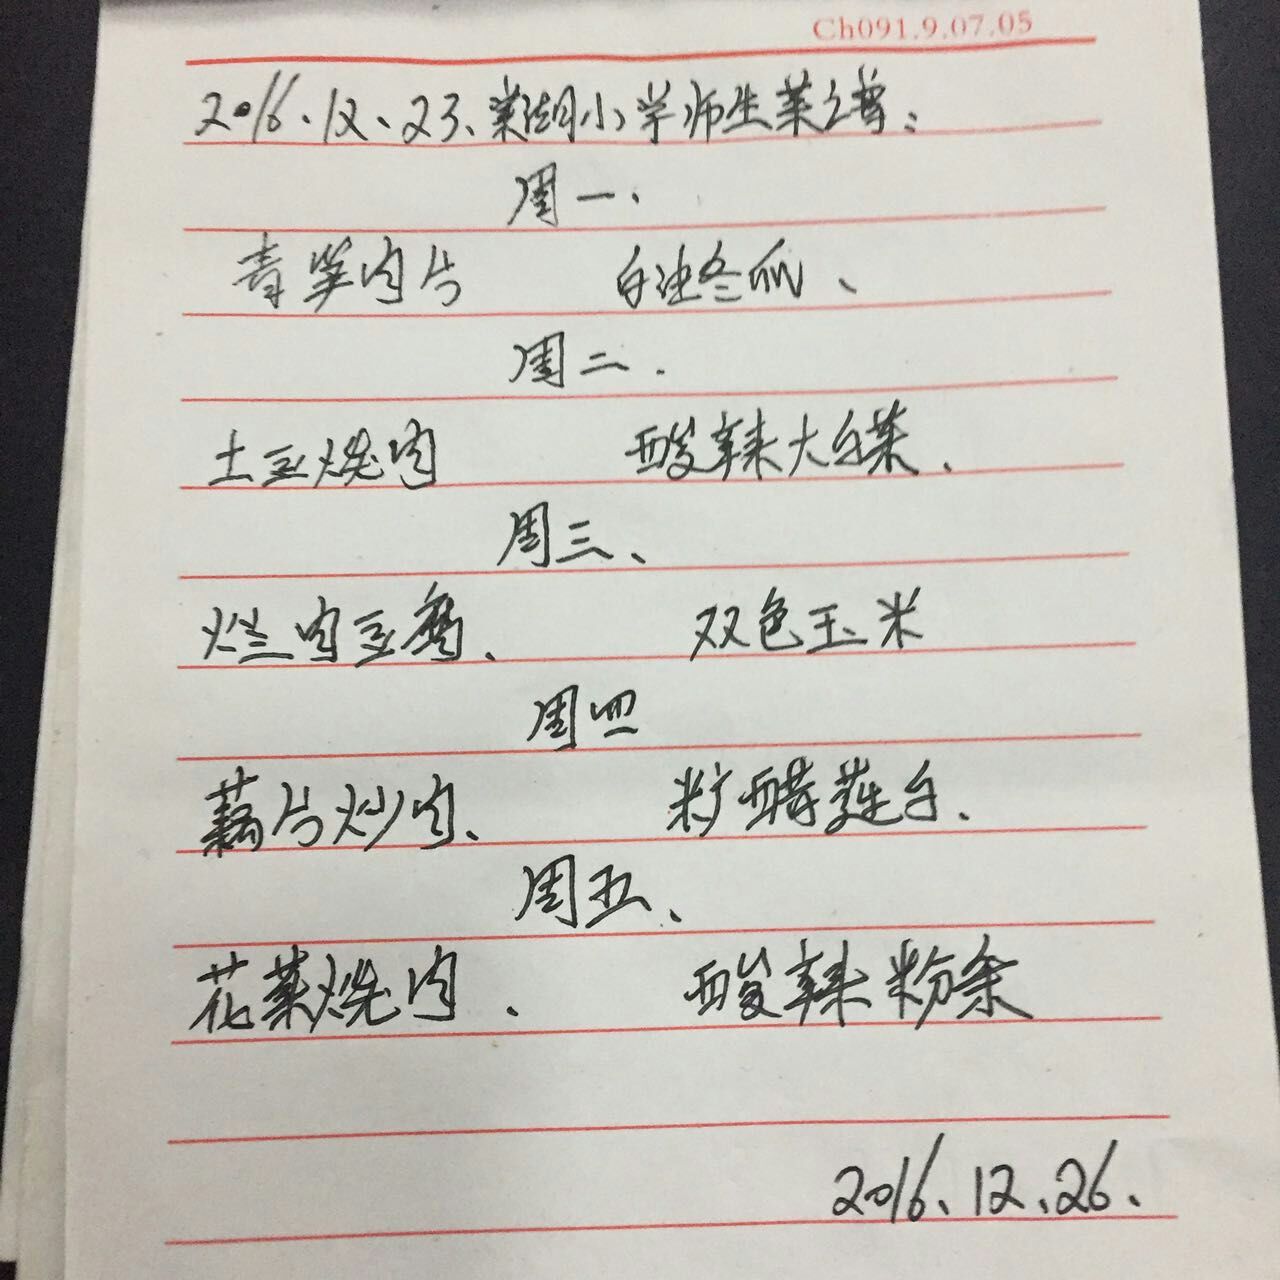 Ch091.9.07.05
2016、12、23、湖小学师生菜谱：
周一、
青笋肉片 白油冬瓜、
周二.
土豆烧肉 酸辣大白菜、
周三、
烂肉豆腐、 双色玉米
周四
藕片炒肉、 糖醋莲白、
周五、
花菜烧肉. 酸辣粉条
2016、12、26、